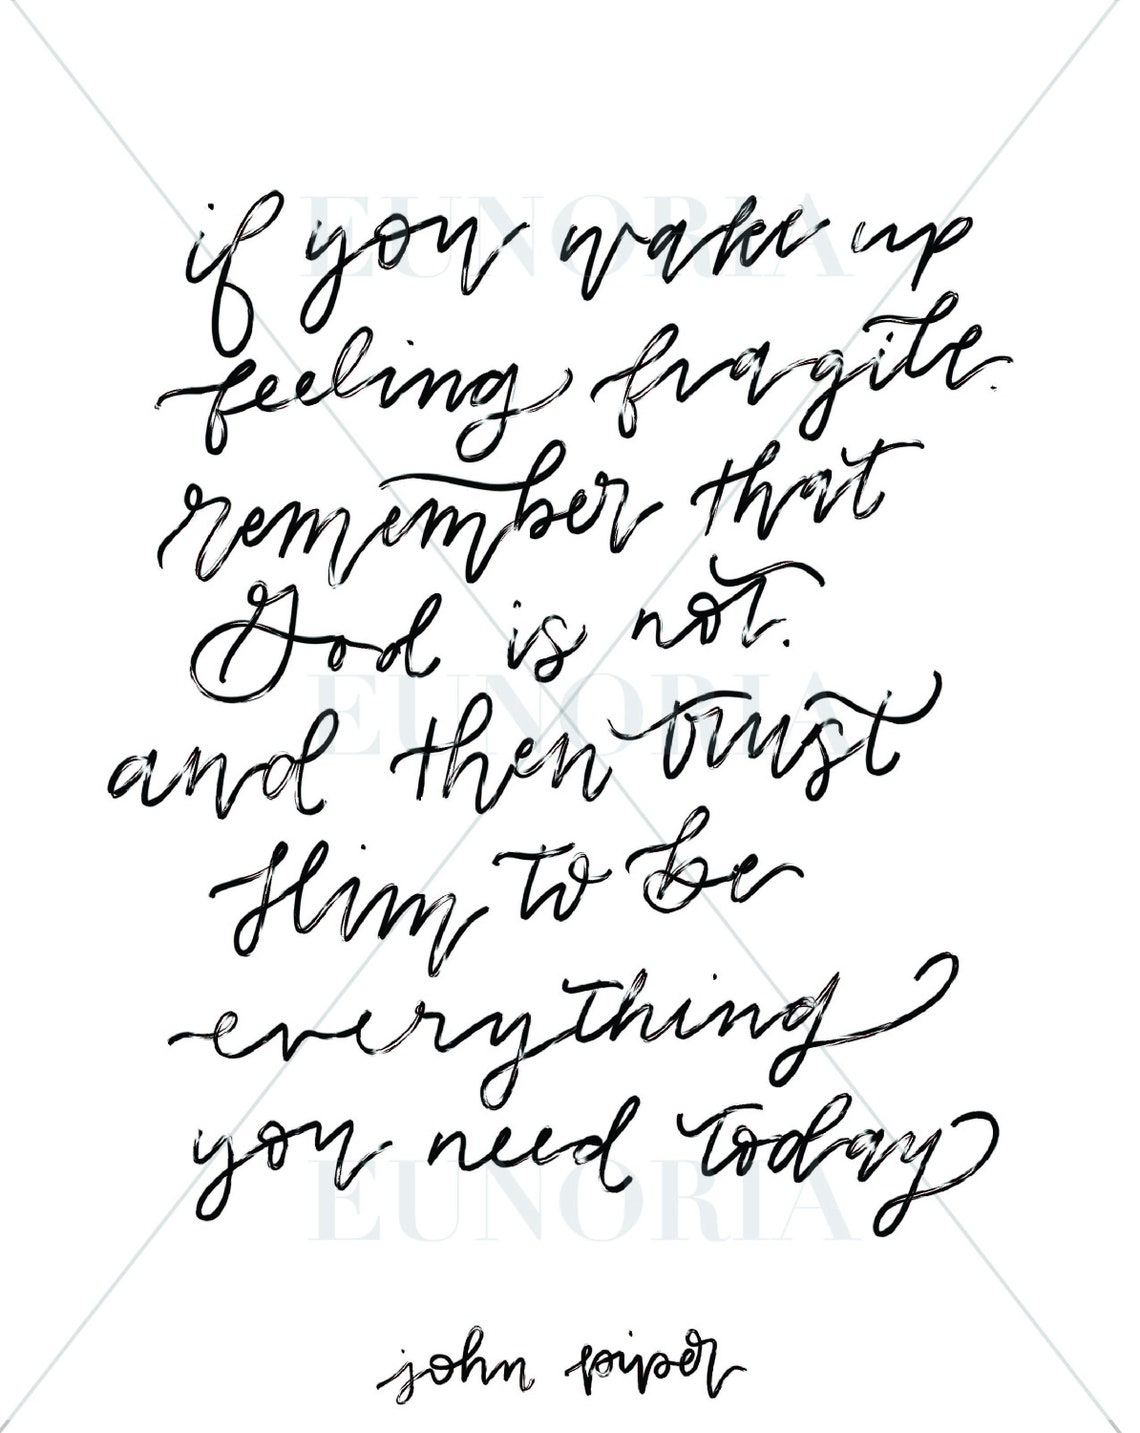 EUNORIA
if you wake up
feeling fragile.
remember that
God is not.
EUNORIA
and then trust
Him to be
everything
you need today
EUNORIA
john piper